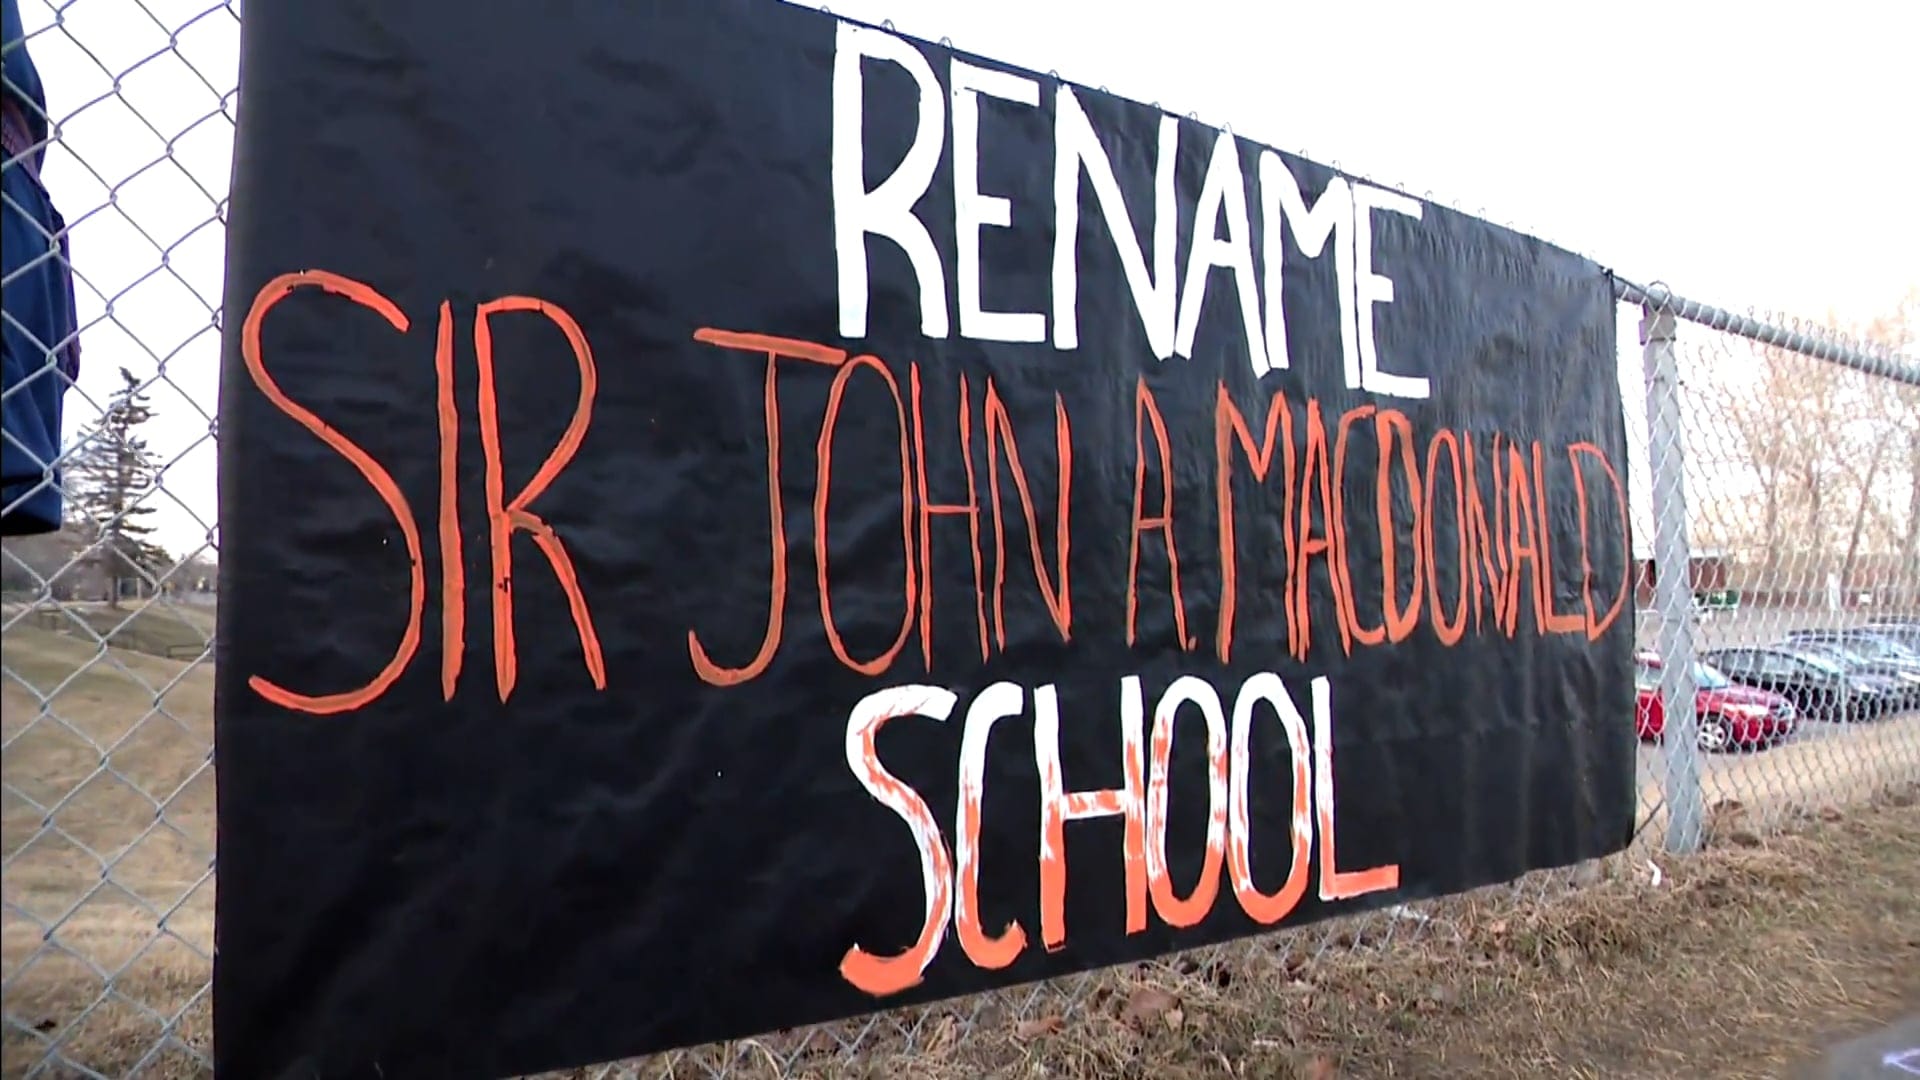 RENAME
SIR JOHN A. MACDONALD
SCHOOL